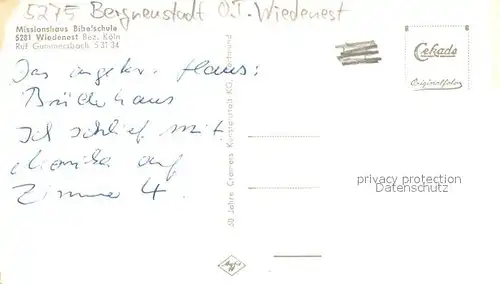 5275 Bergneustadt O.T. Wiedenest
Missionshaus Bibelschule
5281 Wiedenest Bez. Köln
Ruf Gummersbach 5 31 34
Das angekr. Haus:
Brüderhaus
Ich schlief mit
Monika auf
Zimmer 4.
50 Jahre Cramers Kunstanstalt KG, Dortmund
Cekade
Originalfoto
Agfa
privacy protection
Datenschutz